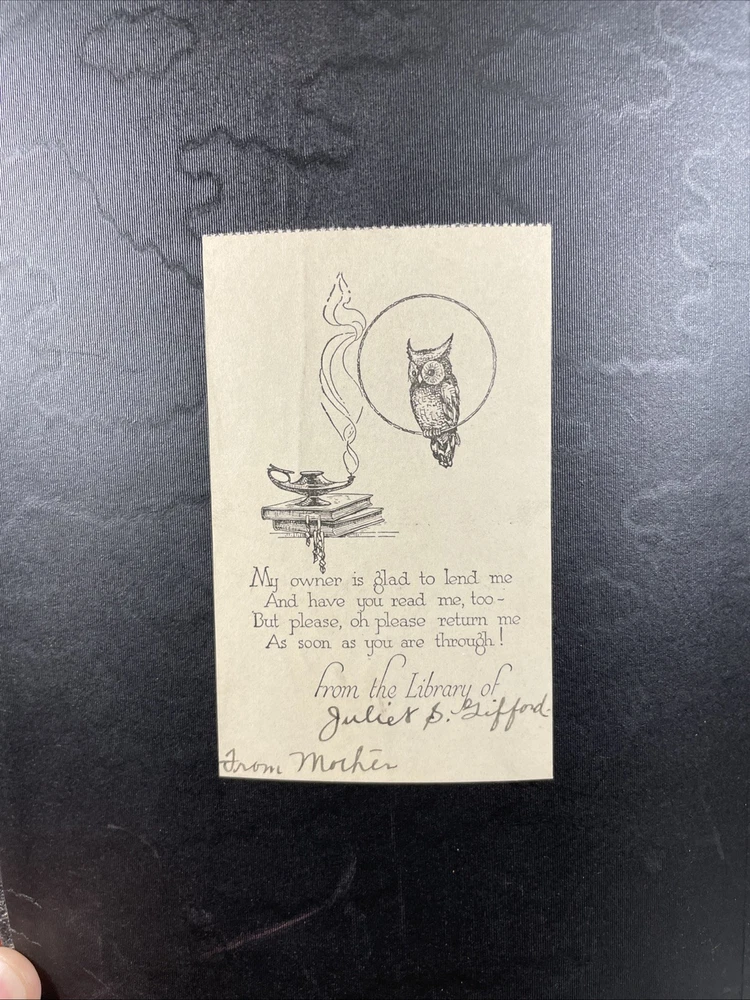 My owner is glad to lend me
And have you read me, too-
But please, oh please return me
As soon as you are through!
from the Library of
Juliet S. Gifford.
From Mother